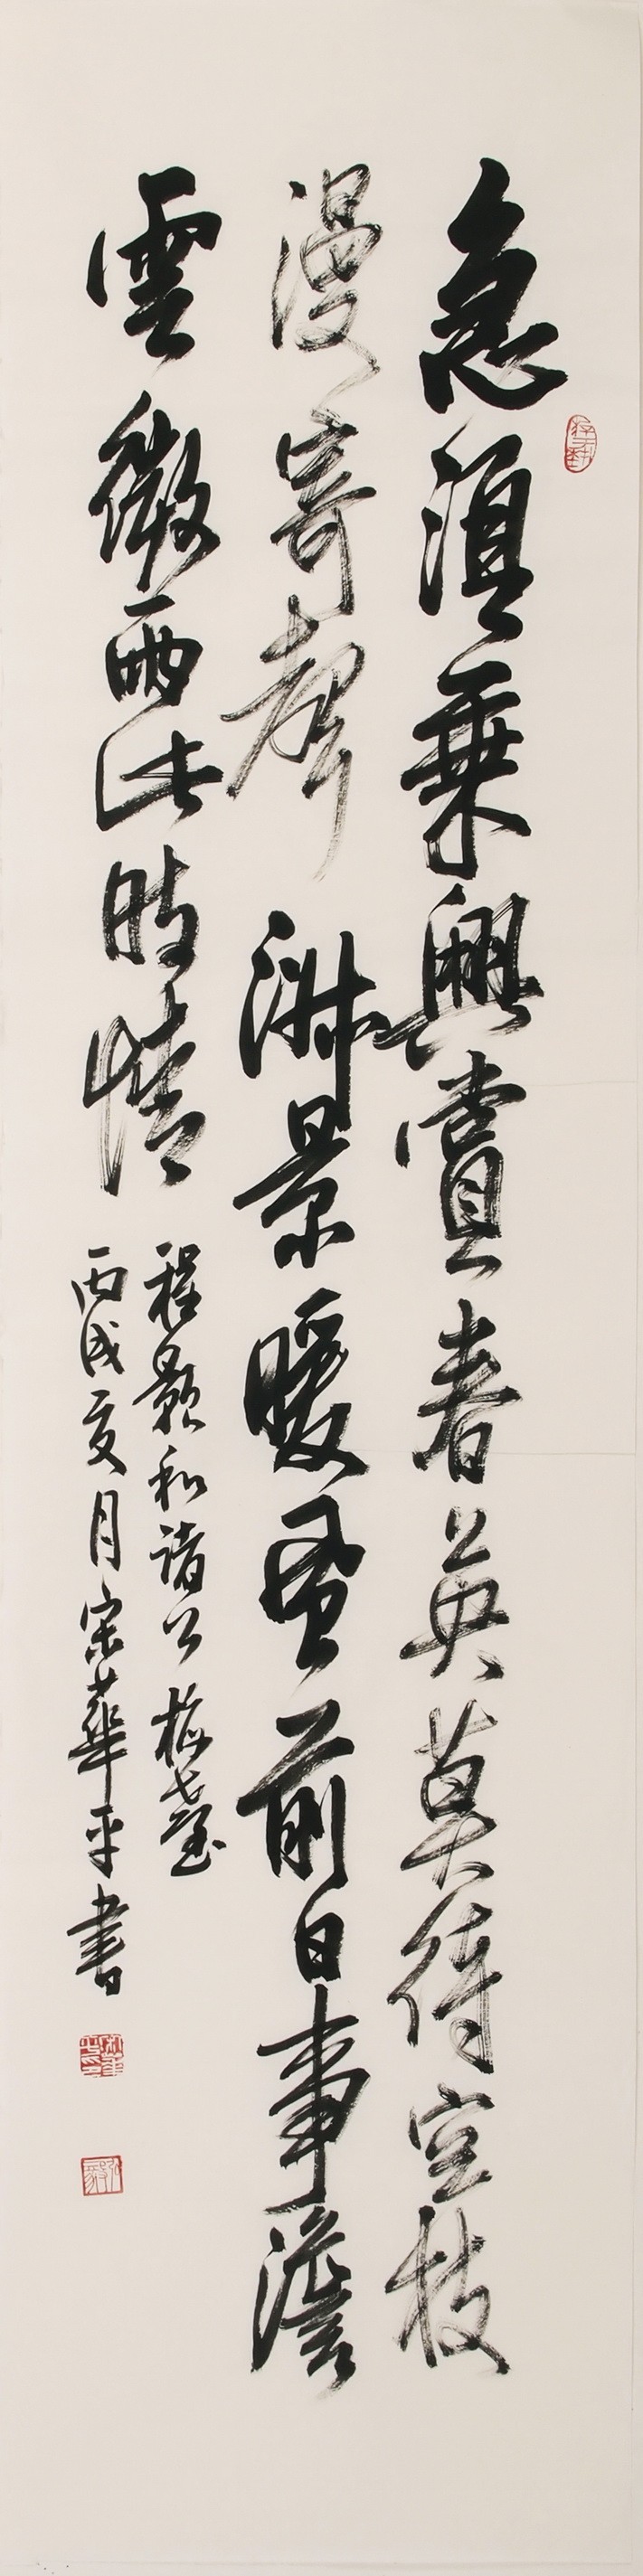 急湏乘興賞春英莫待空枝
漫寄聲淑景暖風前日事澹
雲微雨此時情
程顥和諸公梅臺
丙戌亥月宋華平書